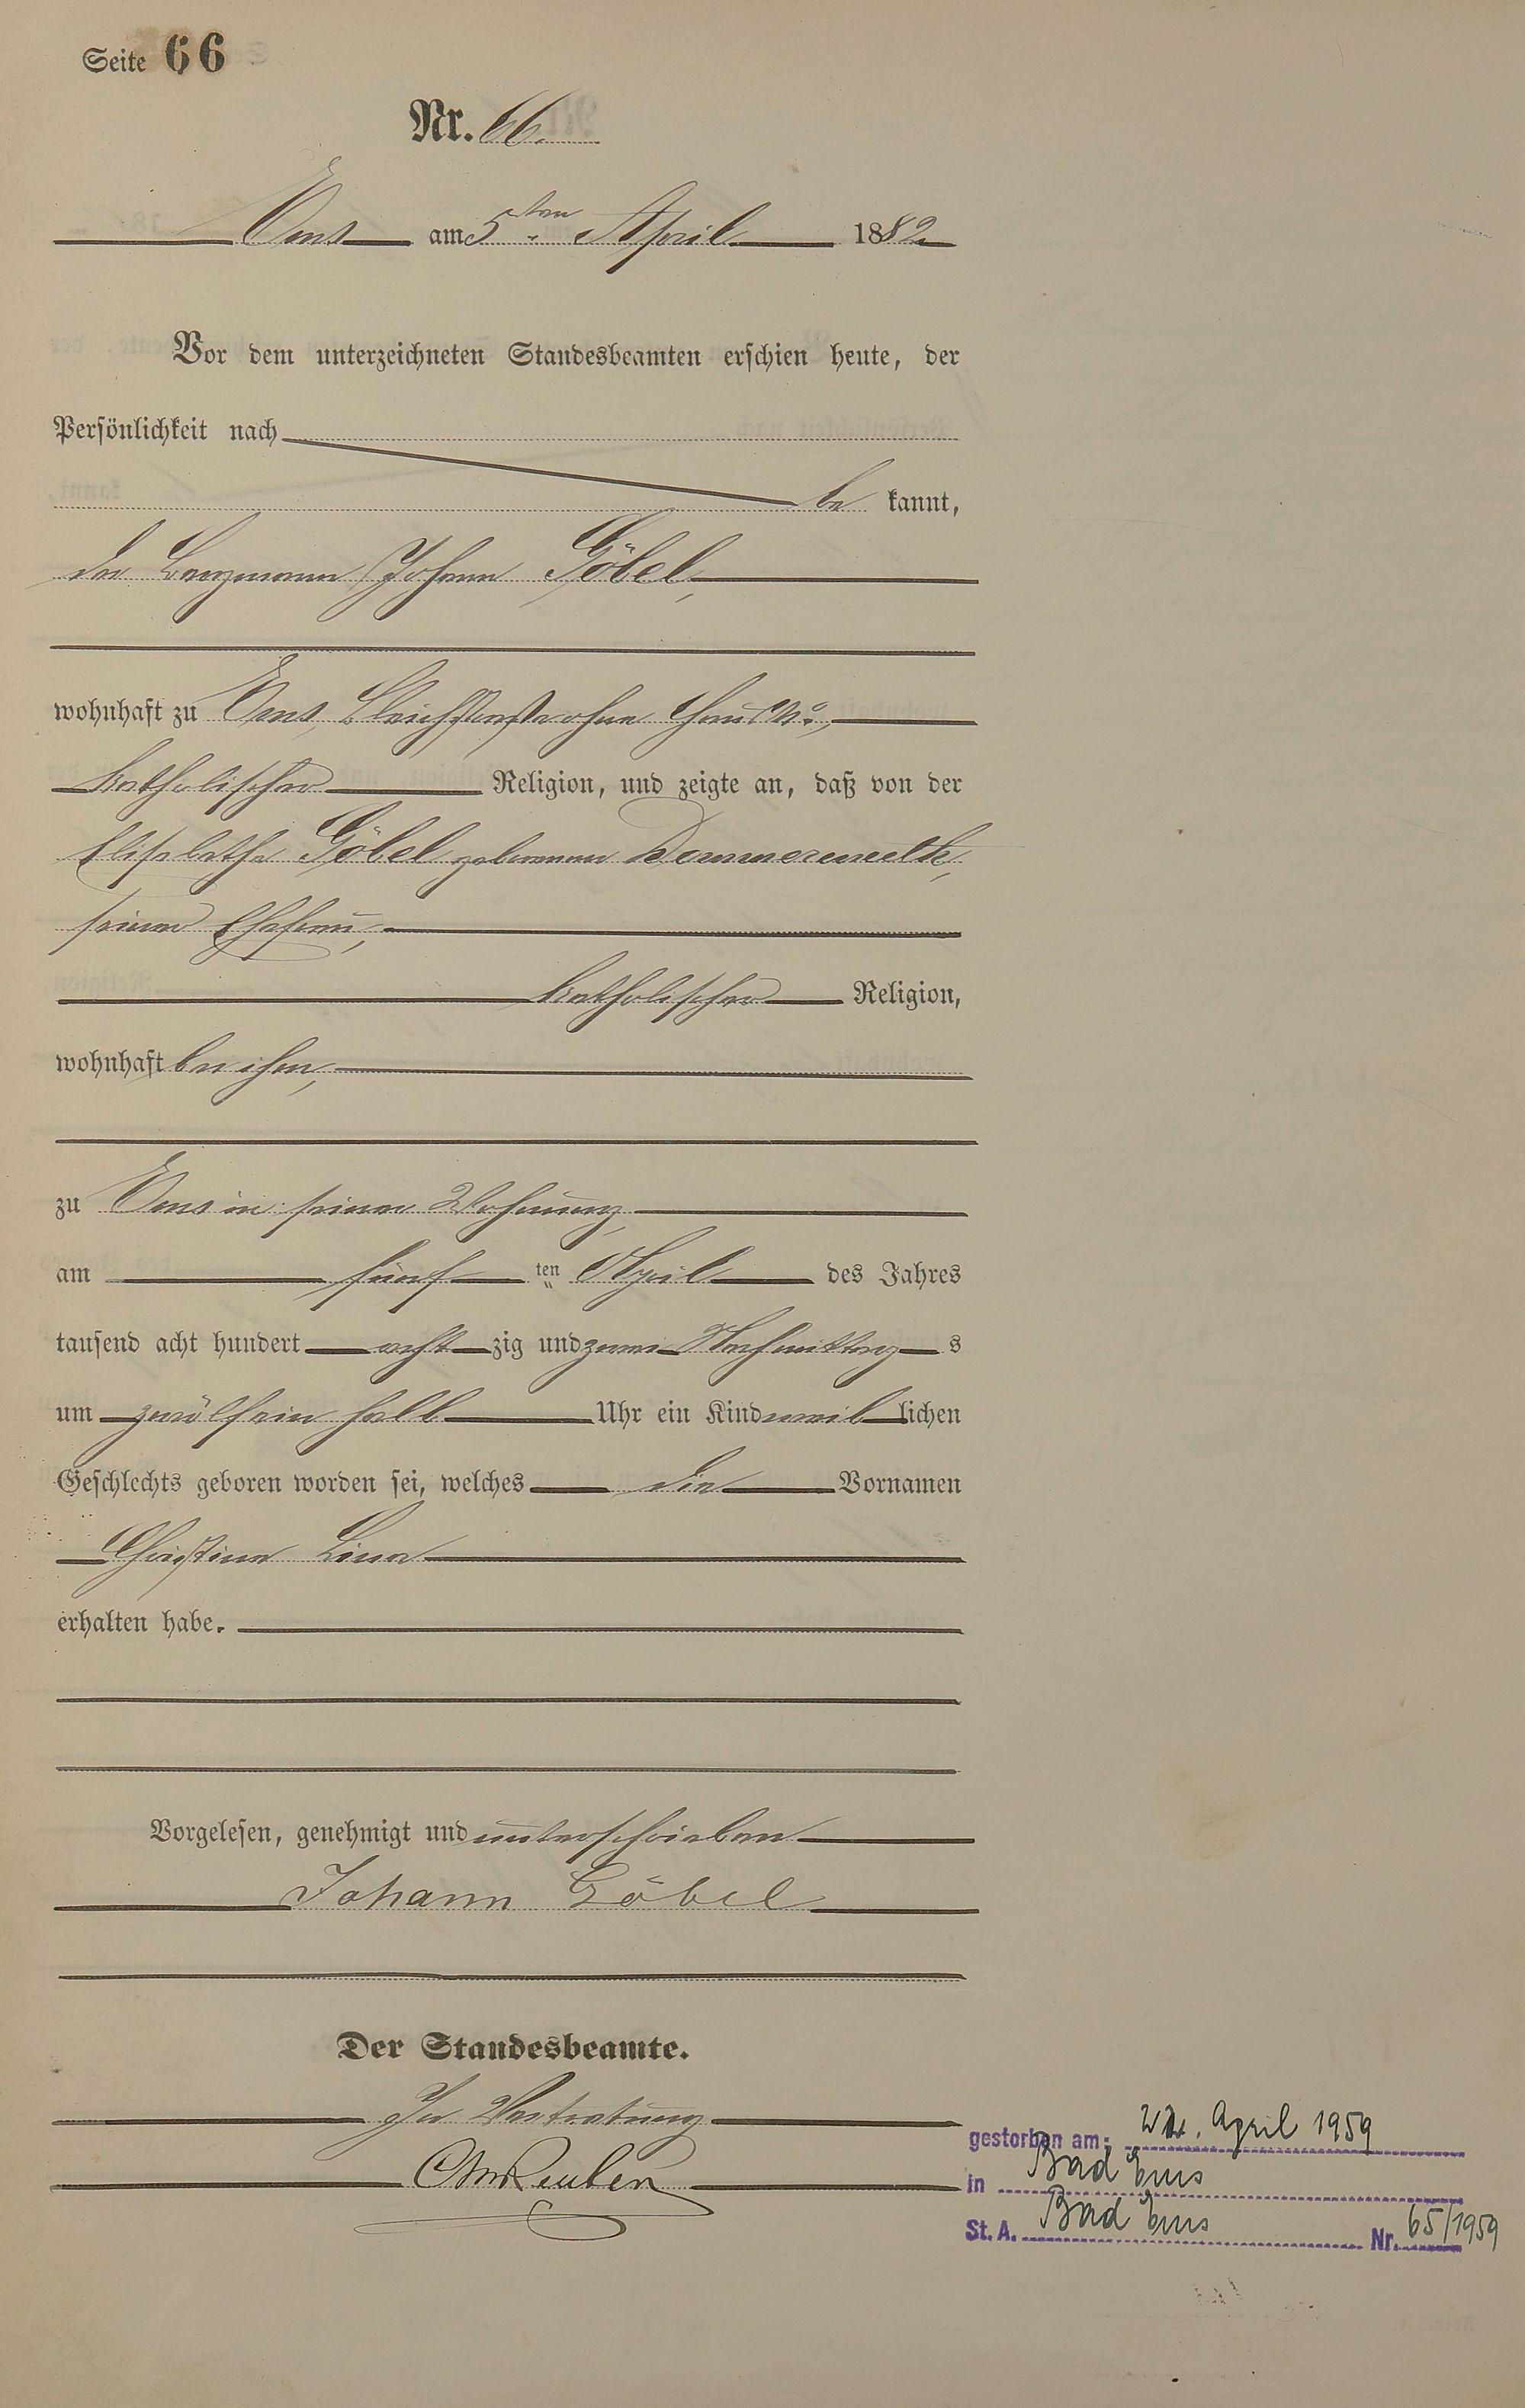 Seite 66
Nr. 66.
Ems am 5ten April 1882
Vor dem unterzeichneten Standesbeamten erschien heute, der
Persönlichkeit nach
be kannt,
der Bergmann Johann Göbel,
wohnhaft zu Ems, Bleichstraße ohne Haus No,
katholischer Religion, und zeigte an, daß von der
Elisabetha Göbel geborenen
seiner Ehefrau,
katholischer Religion,
wohnhaft bei ihm,
zu Ems in seiner Wohnung,
am fünf ten April des Jahres
tausend acht hundert acht zig und zwei Nachmittag s
um zwölfein halb Uhr ein Kind weib lichen
Geschlechts geboren worden sei, welches die Vornamen
Christina Lina
erhalten habe.
Vorgelesen, genehmigt und unterschrieben
Johann Göbel
Der Standesbeamte.
In Vertretung
gestorben am: April 1959
in Bad Ems
St. A. Bad Ems Nr. 65/1959